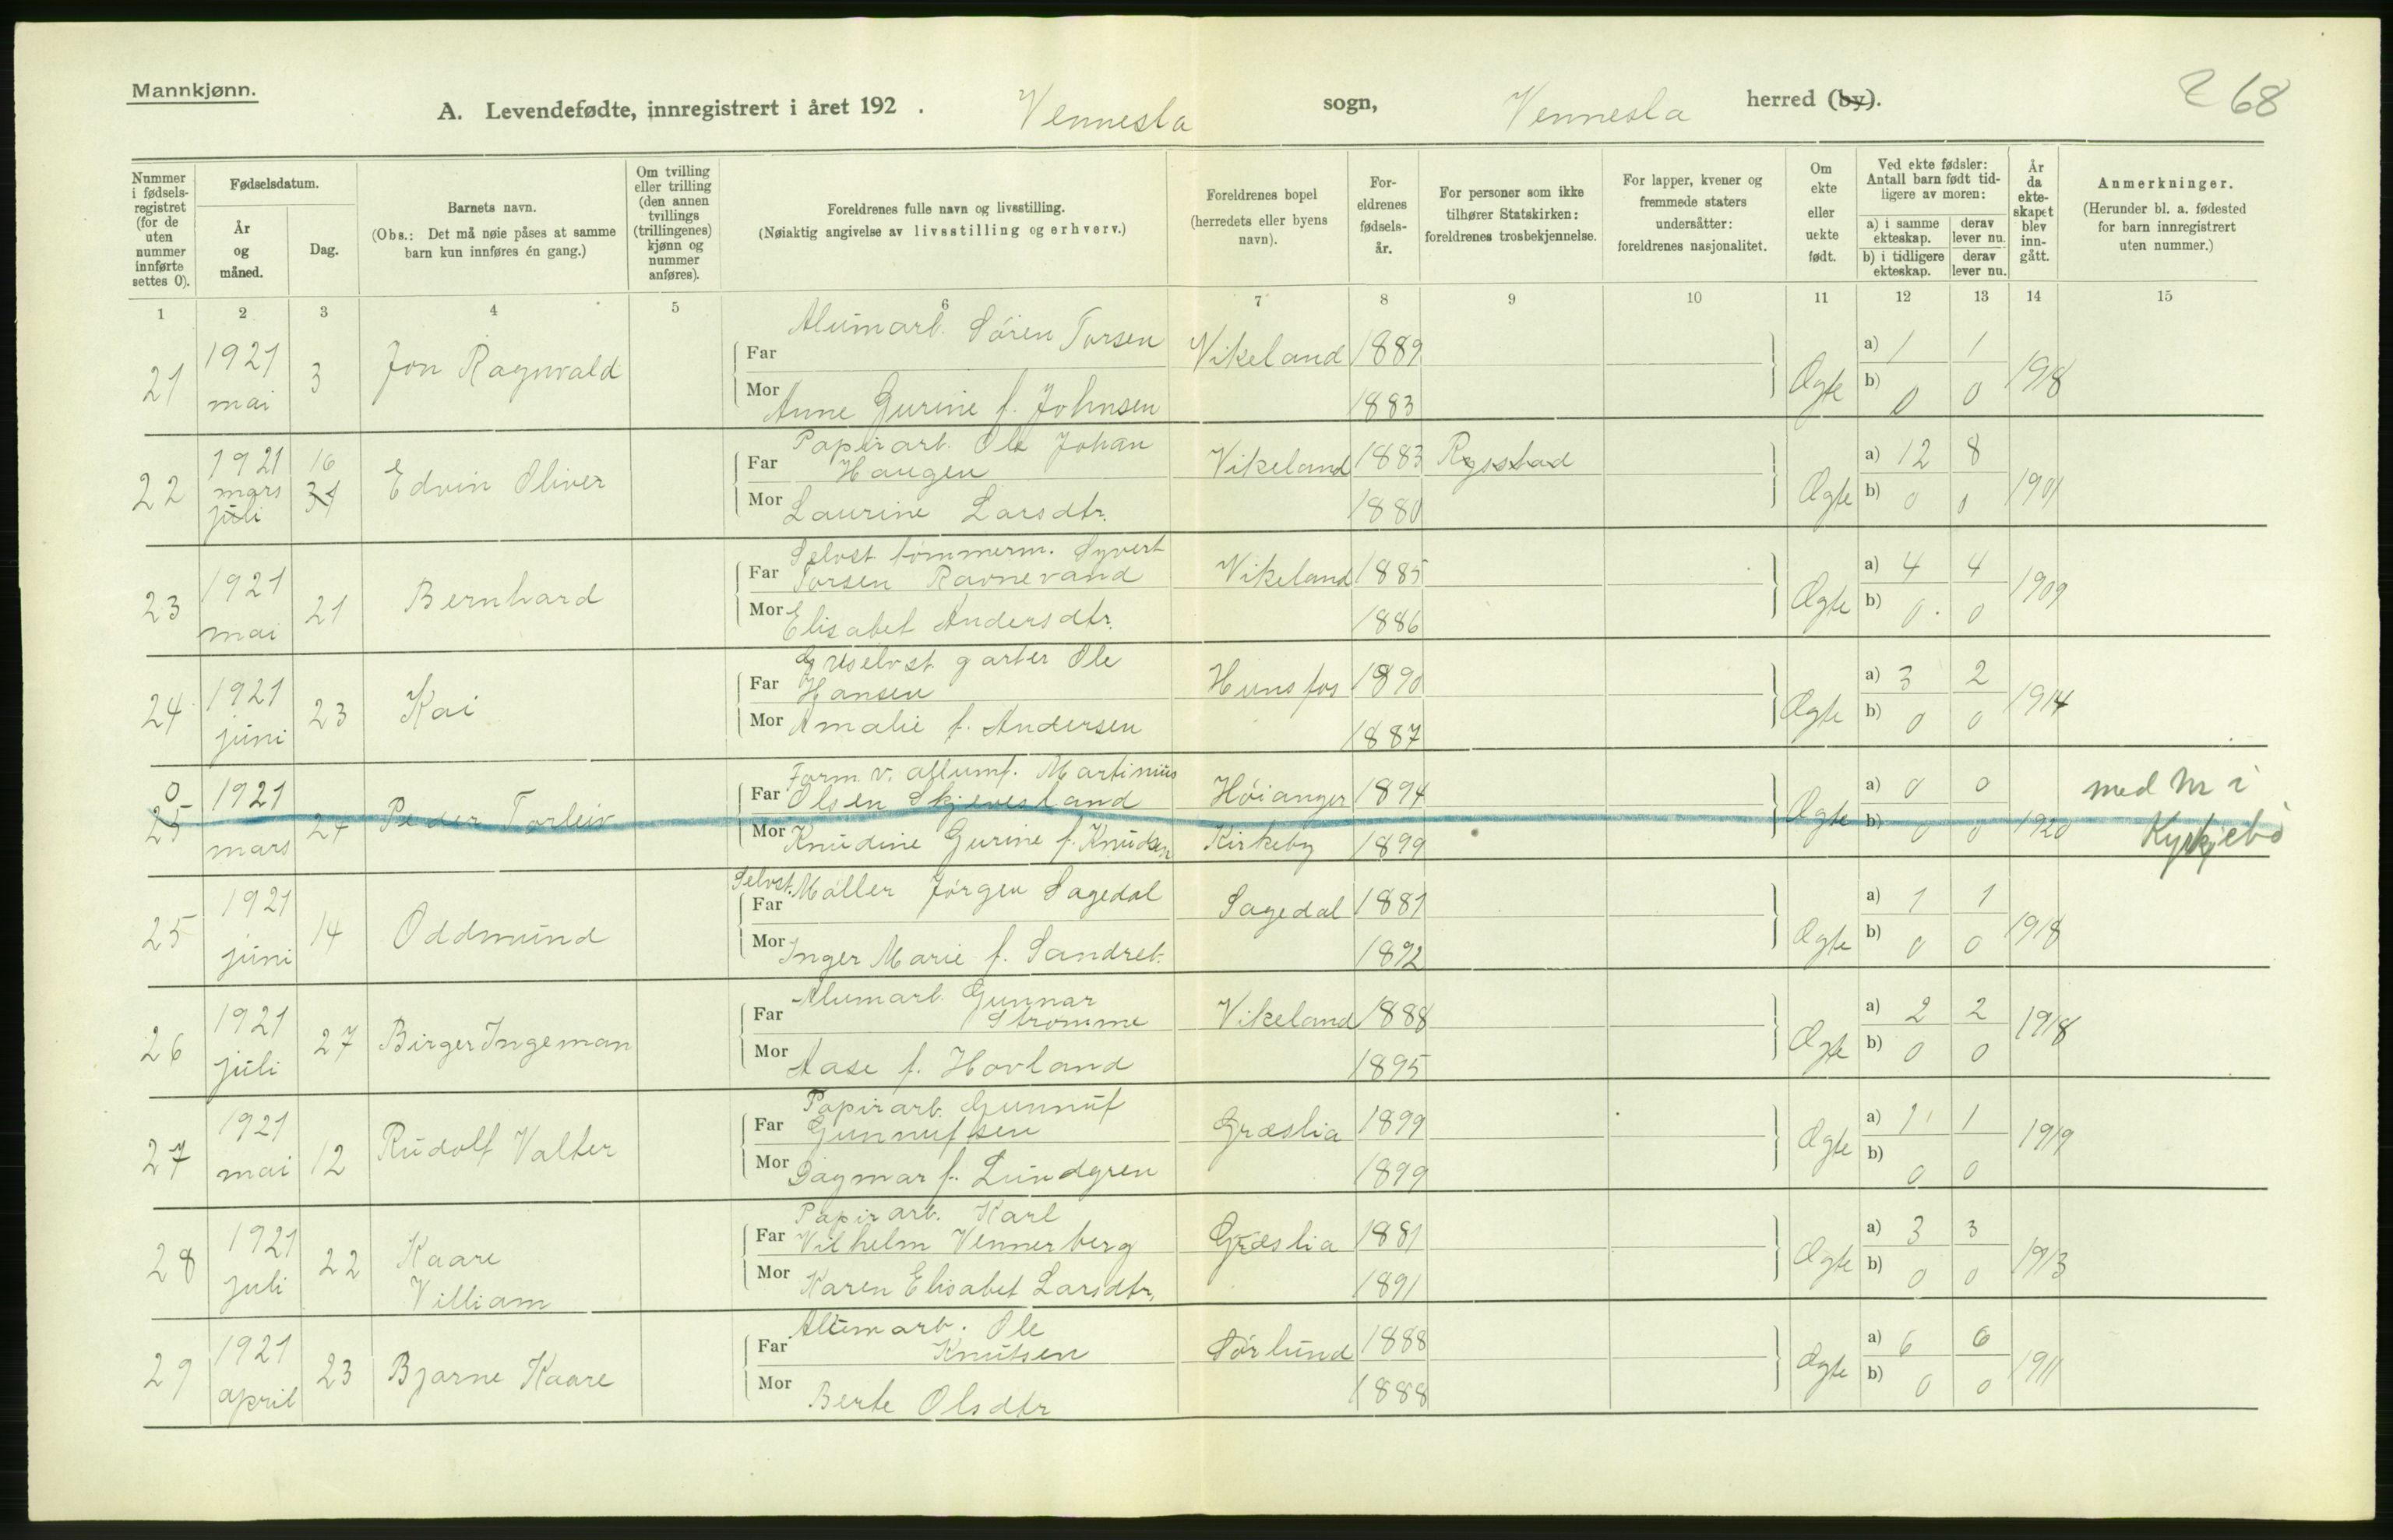 Mannkjønn.
A. Levendefødte, innregistrert i året 192 . Vennesla sogn, Vennesla herred (by).
268
Nummer i fødsels- registret (for de uten nummer innførte settes 0).
Fødselsdatum.
År og måned.
Dag.
Barnets navn.
(Obs.: Det må nøie påses at samme barn kun innføres én gang.)
Om tvilling eller trilling (den annen tvillings (trillingenes) kjønn og nummer anføres).
Foreldrenes fulle navn og livsstilling.
(Nøiaktig angivelse av livsstilling og erhverv.)
Foreldrenes bopel (herredets eller byens navn).
For- eldrenes fødsels- år.
For personer som ikke tilhører Statskirken: foreldrenes trosbekjennelse.
For lapper, kvener og fremmede staters undersåtter: foreldrenes nasjonalitet.
Om ekte eller uekte født.
Ved ekte fødsler: Antall barn født tid- ligere av moren:
a) i samme ekteskap. derav lever nu.
b) i tidligere ekteskap. derav lever nu.
År da ekte- skapet blev inn- gått.
Anmerkninger.
(Herunder bl. a. fødested for barn innregistrert uten nummer.)
1 2 3 4 5 6 7 8 9 10 11 12 13 14 15
21 1921 mai 3 Jon Ragnvald
Far Alumarb. Sören Torsen Vikeland 1889
Mor Anne Gurine f. Johnsen 1883
Ægte a) 1 1 b) 0 0 1918
22 1921 mars juli 16 31 Edvin Oliver
Far Papirarb. Ole Johan Haugen Vikeland 1883
Mor Laurine Larsdtr. 1880
Ægte a) 12 8 b) 0 0 1901
23 1921 mai 21 Bernhard
Far Selvst tömmerm. Syvert Torsen Ravnevand Vikeland 1885
Mor Elisabet Andersdtr. 1886
Ægte a) 4 4 b) 0. 0 1909
24 1921 juni 23 Kai
Far Ole Hansen Hunsfos 1890
Mor Amalie f. Andersen 1887
Ægte a) 3 2 b) 0 0 1914
0 25 1921 mars 27 Peder Torleiv
Far Form. v. allumf. Martinius Olsen Skjevesland Höianger 1894
Mor Knudine Gurine f. Knudsen Kirkeby 1899
Ægte a) 0 0 b) 0 0 1920
med M i Kyrkjebö
25 1921 juni 14 Oddmund
Far Selvst. Möller Jörgen Sagedal Sagedal 1881
Mor Inger Marie f. Sandret. 1892
Ægte a) 1 1 b) 0 0 1918
26 1921 juli 27 Birger Ingeman
Far Alumarb. Gunnar Strömme Vikeland 1888
Mor Aase f. Hovland 1895
Ægte a) 2 2 b) 0 0 1918
27 1921 mai 12 Rudolf Valter
Far Papirarb. Gunnuf Gunnufsen Græslia 1899
Mor Dagmar f. Lundgren 1899
Ægte a) 1 1 b) 0 0 1919
28 1921 juli 22 Kaare Villiam
Far Papirarb. Karl Vilhelm Vennerberg Græslia 1881
Mor Karen Elisabet Larsdtr. 1891
Ægte a) 3 3 b) 0 0 1913
29 1921 april 23 Bjarne Kaare
Far Alumarb. Ole Knutsen Sörlund 1888
Mor Berte Olsdtr 1888
Ægte a) 6 6 b) 0 0 1911